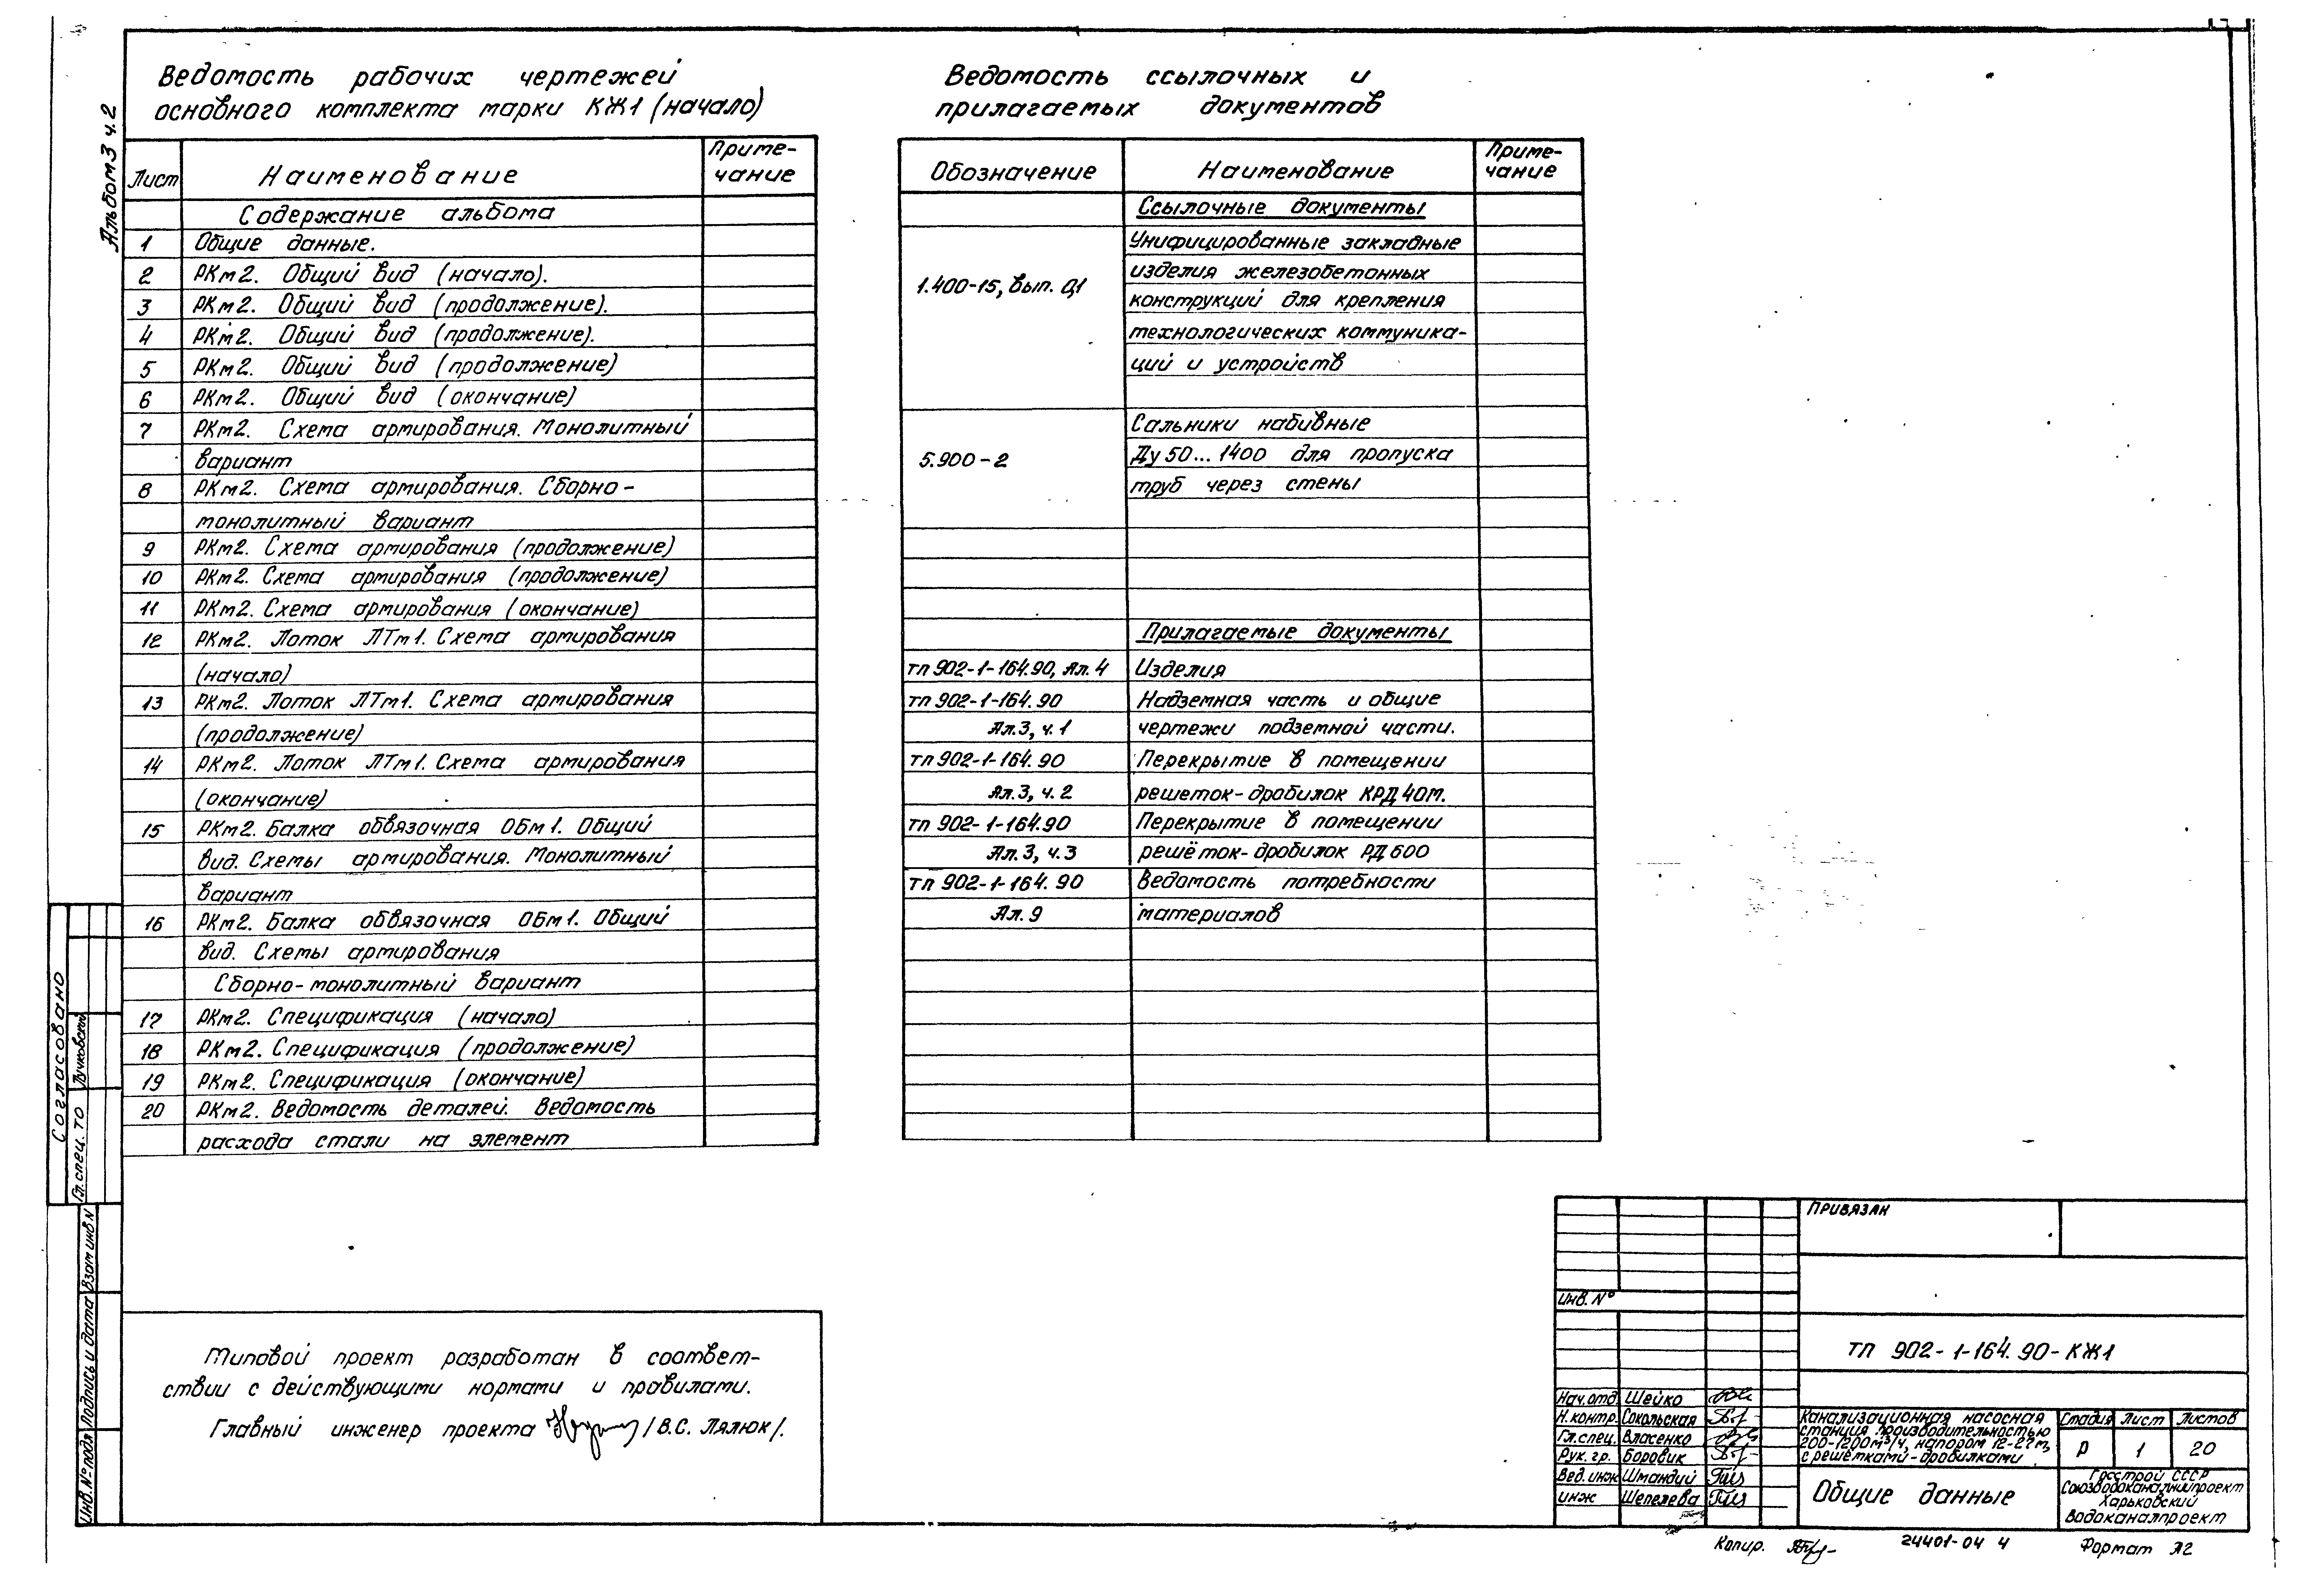 Альбом 3 ч.2
Ведомость рабочих чертежей
основного комплекта марки КЖ1 (начало)
Лист Наименование Приме-
чание
Содержание альбома
1 Общие данные.
2 РКм2. Общий вид (начало).
3 РКм2. Общий вид (продолжение).
4 РКм2. Общий вид (продолжение).
5 РКм2. Общий вид (продолжение)
6 РКм2. Общий вид (окончание)
7 РКм2. Схема армирования. Монолитный
вариант
8 РКм2. Схема армирования. Сборно-
монолитный вариант
9 РКм2. Схема армирования (продолжение)
10 РКм2. Схема армирования (продолжение)
11 РКм2. Схема армирования (окончание)
12 РКм2. Лоток ЛТм1. Схема армирования
(начало)
13 РКм2. Лоток ЛТм1. Схема армирования
(продолжение)
14 РКм2. Лоток ЛТм1. Схема армирования
(окончание)
15 РКм2. Балка обвязочная ОБм1. Общий
вид. Схемы армирования. Монолитный
вариант
16 РКм2. Балка обвязочная ОБм1. Общий
вид. Схемы армирования
Сборно-монолитный вариант
17 РКм2. Спецификация (начало)
18 РКм2. Спецификация (продолжение)
19 РКм2. Спецификация (окончание)
20 РКм2. Ведомость деталей. Ведомость
расхода стали на элемент
Ведомость ссылочных и
прилагаемых документов
Обозначение Наименование Приме-
чание
Ссылочные документы
Унифицированные закладные
изделия железобетонных
1.400-15, вып. 0,1
конструкций для крепления
технологических коммуника-
ций и устройств
Сальники набивные
5.900-2 Ду 50...1400 для пропуска
труб через стены
Прилагаемые документы
тп 902-1-164.90, Ал. 4 Изделия
тп 902-1-164.90 Надземная часть и общие
Ал.3, ч.1 чертежи подземной части.
тп 902-1-164.90 Перекрытие в помещении
Ал.3, ч.2 решеток-дробилок КРД 40м.
тп 902-1-164.90 Перекрытие в помещении
Ал.3, ч.3 решёток-дробилок РД 600
тп 902-1-164.90 Ведомость потребности
Ал. 9 материалов
Согласовано
Гл. спец. ТО Лучковский
Взам инв N
Подпись и дата
Инв. N° подл
Типовой проект разработан в соответ-
ствии с действующими нормами и правилами.
Главный инженер проекта /В.С. Лялюк/.
Привязан
Инв. N°
ТП 902-1-164.90-КЖ1
Нач. отд Шейко
Н. контр. Сокольская
Гл. спец. Власенко
Рук. гр. Боровик
Вед. инж Шмандий
инж Шепелева
Канализационная насосная
станция производительностью
200-1200м³/ч, напором 12-27м,
с решётками-дробилками
Стадия Лист Листов
Р 1 20
Общие данные
Госстрой СССР
Союзводоканалниипроект
Харьковский
Водоканалпроект
Копир. 24401-04 4 Формат А2